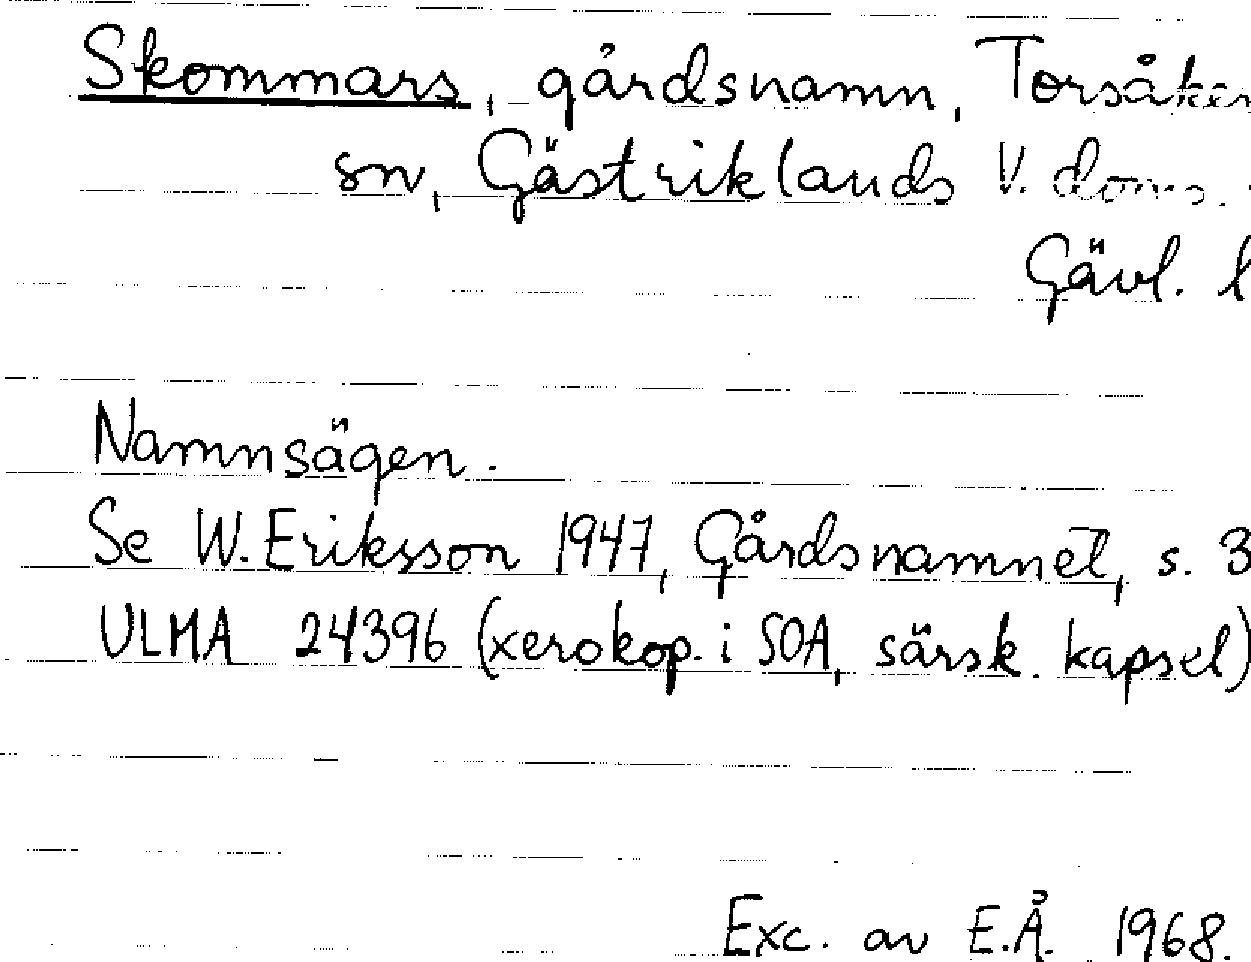 Skommars, gårdsnamn, Torsåker
sn, Gästriklands V. doms.
Gävl. l
Namnsägen.
Se W. Eriksson 1947, Gårdsnamnet, s. 3
ULMA 24396 (xerokop. i SOA, särsk. kapsel)
Exc. av E.Å. 1968.